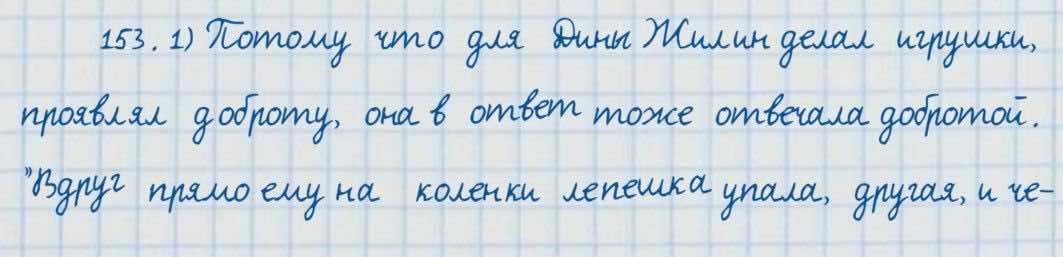 153. 1) Потому что для Дины Жилин делал игрушки,
проявлял доброту, она в ответ тоже отвечала добротой.
"Вдруг прямо ему на коленки лепешка упала, другая, и че-